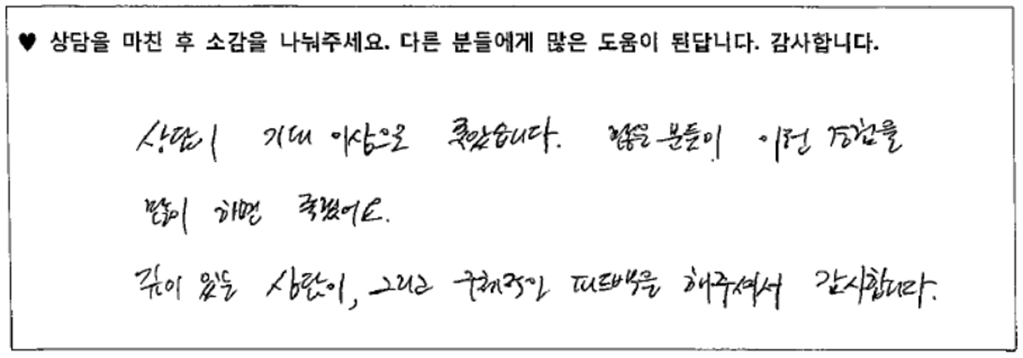 ♥ 상담을 마친 후 소감을 나눠주세요. 다른 분들에게 많은 도움이 된답니다. 감사합니다.
상담이 기대 이상으로 좋았습니다. 많은 분들이 이런 경험을
많이 하면 좋겠어요.
깊이 있는 상담이, 그리고 구체적인 피드백을 해주셔서 감사합니다.